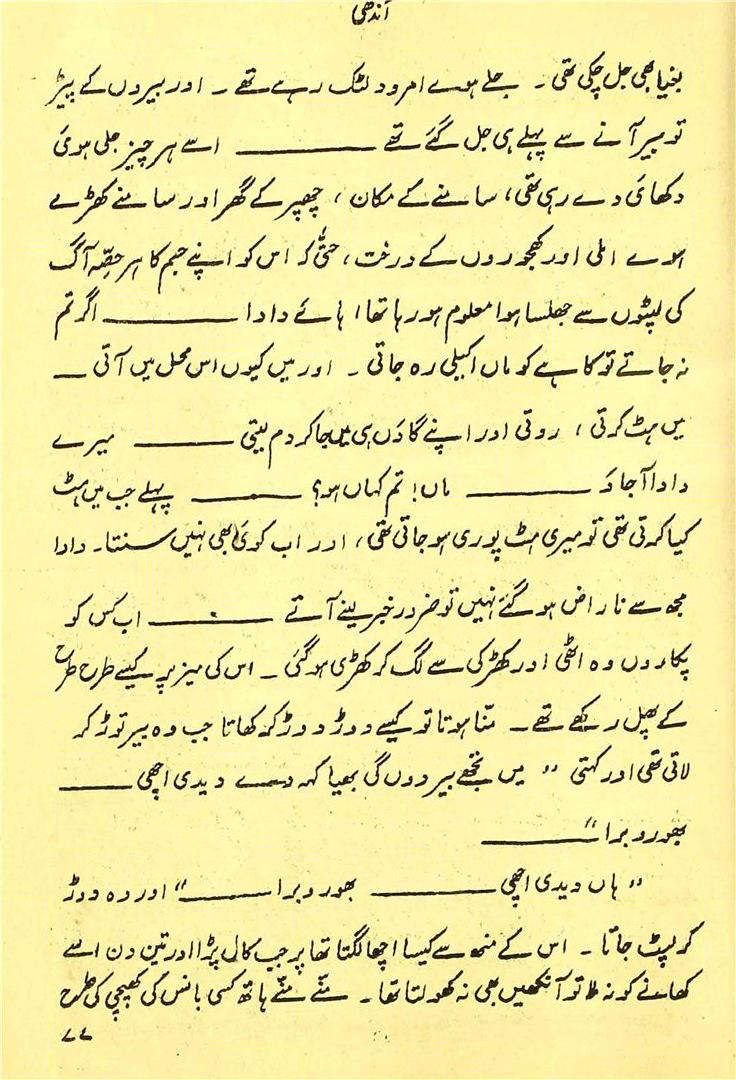 آندھی
بغیا بھی جل چکی تھی ۔ جلے ہوے امرود لٹک رہے تھے ۔ اور بیروں کے پیڑ
تو بیر آنے سے پہلے ہی جل گئے تھے ــــــــــــ اسے ہر چیز جلی ہوئی
دکھائی دے رہی تھی، سامنے کے مکان ، چھپر کے گھر اور سامنے کھڑے
ہوے املی اور کھجوروں کے درخت ، حتیٰ کہ اس کو اپنے جسم کا ہر حصّہ آگ
کی لپٹوں سے جھلسا ہوا معلوم ہو رہا تھا، ہائے دادا ــــــــــــ اگر تم
نہ جاتے تو کاہے کو ماں اکیلی رہ جاتی ۔ اور میں کیوں اس محل میں آتی ــــ
میں ہٹ کرتی ، روتی اور اپنے گاؤں ہی میں جا کر دم لیتی ــــــــــــ میرے
دادا آ جاؤ ــــــــــــ ماں! تم کہاں ہو؟ ــــــــــــ پہلے جب میں ہٹ
کیا کرتی تھی تو میری ہٹ پوری ہو جاتی تھی ، اور اب کوئی بھی نہیں سنتا۔ دادا
مجھ سے ناراض ہو گئے نہیں تو ضرور خبر لینے آتے ــــــــــــ اب کس کو
پکاروں وہ اٹھی اور کھڑکی سے لگ کر کھڑی ہو گئی ۔ اس کی میز پر کیسے طرح طرح
کے پھل رکھے تھے ۔ منّا ہوتا تو کیسے دوڑ دوڑ کر کھاتا جب وہ بیر توڑ کر
لاتی تھی اور کہتی " میں تجھے بیر دوں گی بھیا کہہ دے دیدی اچھی ــــــــ
بھورو برا ــــــــــــ"
" ہاں دیدی اچھی ــــــــــــ بھورو برا ــــــــــــ" اور وہ دوڑ
کر لپٹ جاتا ۔ اس کے منھ سے کیسا اچھا لگتا تھا پر جب کال پڑا اور تین دن اسے
کھانے کو نہ ملا تو آنکھیں بھی نہ کھولتا تھا ۔ منّے منّے ہاتھ کسی بانس کی کھپچی کی طرح
۷۷